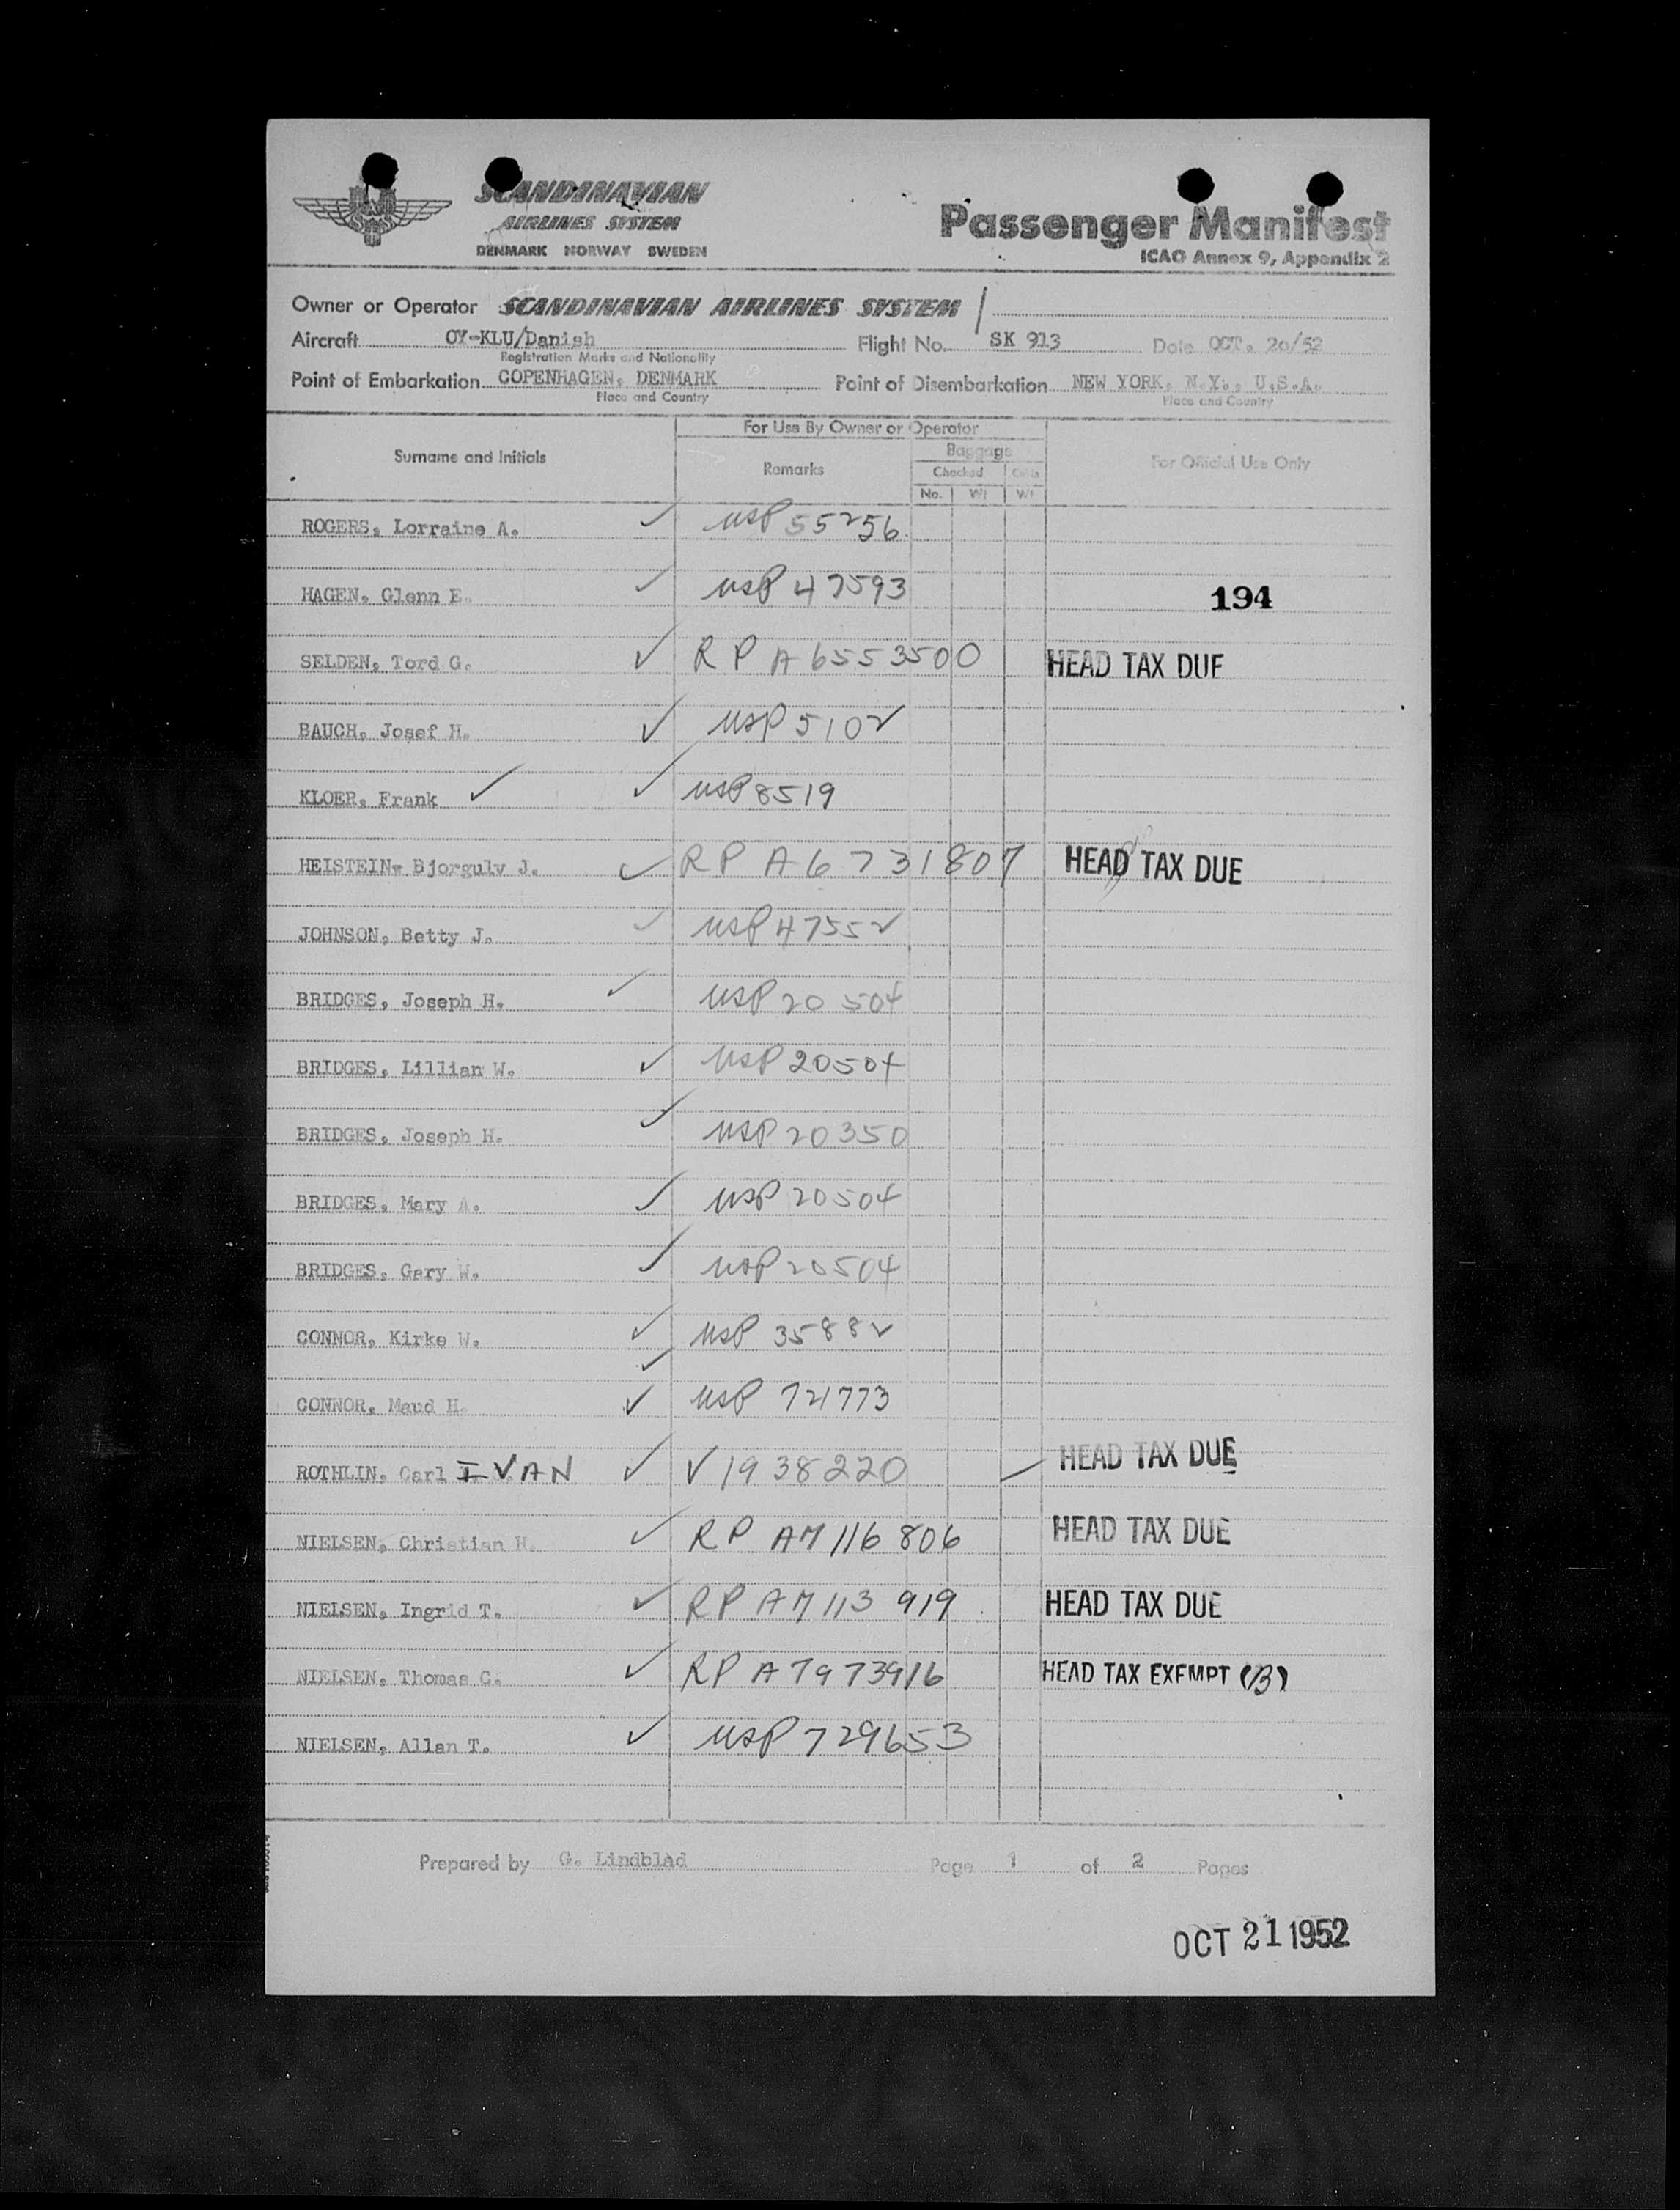 SCANDINAVIAN
AIRLINES SYSTEM
DENMARK NORWAY SWEDEN
Passenger Manifest
ICAO Annex 9, Appendix 2
Owner or Operator SCANDINAVIAN AIRLINES SYSTEM
Aircraft OY-KLU/Danish Flight No. SK 913 Date OCT. 20/52
Registration Marks and Nationality
Point of Embarkation COPENHAGEN, DENMARK Point of Disembarkation NEW YORK, N.Y., U.S.A.
Place and Country Place and Country
For Use By Owner or Operator
Surname and Initials Remarks Baggage For Official Use Only
Checked Cabin
No. Wt Wt
ROGERS, Lorraine A. ✓ USP 55256
HAGEN, Glenn E. ✓ USP 47593 194
SELDEN, Tord G. ✓ RP A6553500 HEAD TAX DUE
BAUCH, Josef H. ✓ USP 5102
KLOER, Frank ✓ ✓ USP 8519
HEISTEIN- Bjorgulv J. ✓ RP A6731807 HEAD TAX DUE
JOHNSON, Betty J. ✓ USP 47552
BRIDGES, Joseph H. ✓ USP 20504
BRIDGES, Lillian W. ✓ USP 20504
BRIDGES, Joseph H. ✓ USP 20350
BRIDGES, Mary A. ✓ USP 20504
BRIDGES, Gary W. ✓ USP 20504
CONNOR, Kirke W. ✓ USP 35882
CONNOR, Maud H. ✓ USP 721773
ROTHLIN, Carl IVAN ✓ V1938220 HEAD TAX DUE
NIELSEN, Christian H. ✓ RP A7116806 HEAD TAX DUE
NIELSEN, Ingrid T. ✓ RP A7113919 HEAD TAX DUE
NIELSEN, Thomas C. ✓ RP A7973916 HEAD TAX EXEMPT (B)
NIELSEN, Allan T. ✓ USP 729653
Prepared by G. Lindblad Page 1 of 2 Pages
OCT 21 1952